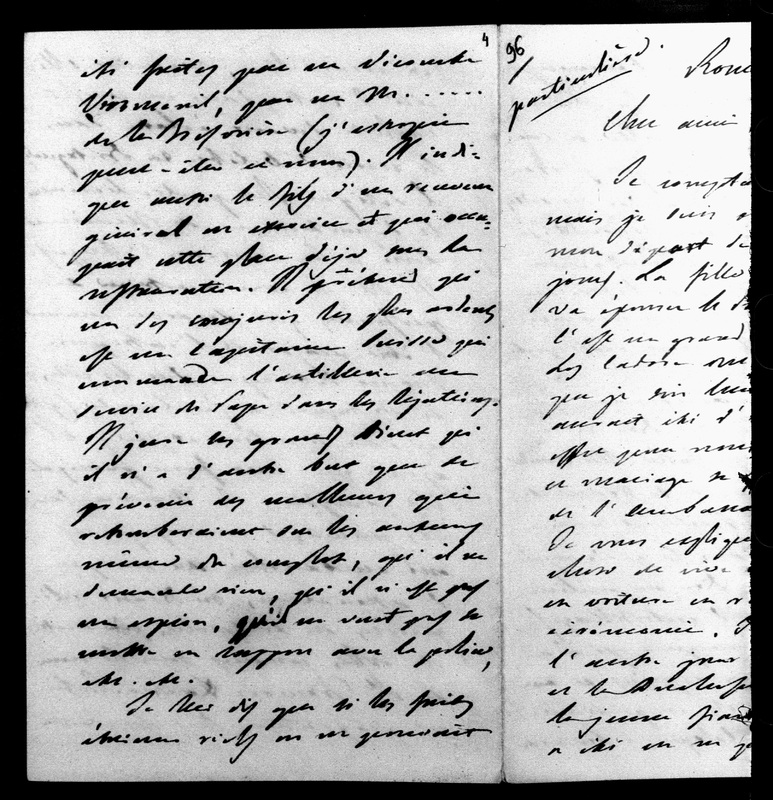 4
été prêtés par un Vicomte
Viomenil, par un M. ......
de la Briffarière (j'estropie
peut-être ce nom). Il indi-
que aussi le fils d'un receveur
général en exercice et qui occu-
pait cette place déjà sous la
restauration. Il prétend qu'
un des conjurés les plus ardents
est un Capitaine Suisse qui
commanda l'artillerie au
service du Pape dans les Légations.
Il jure ses grands Dieux qu'
il n'a d'autre but que de
prévenir des malheurs qui
retomberaient sur les auteurs
même du complot, qu'il ne
demande rien, qu'il n'est pas
un espion, qu'il ne veut pas se
mettre en rapport avec la police,
etc. etc.
Je lui dis que si les faits
étaient réels on ne pourrait
96
particulière.
Rom
Cher ami,
Je compta
mais je suis
mon départ de
jours. La fille
va épouser le
C'est un grand
que je suis
aurait été d'
offre pour
ce mariage se
de l'embarras
Je vous explique
chose de vive
en voiture en
cérémonie.
l'autre jour
et la Duchesse
la jeune
a été en